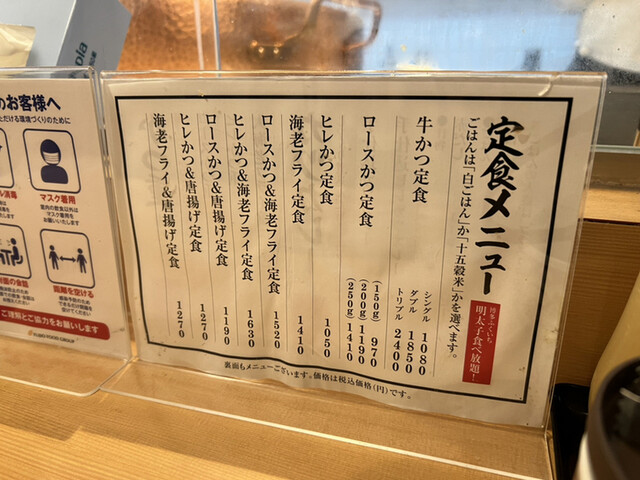 定食メニュー
博多ふくいち
明太子食べ放題！
ごはんは「白ごはん」か「十五穀米」かを選べます。
牛かつ定食
シングル 1080
ダブル 1850
トリプル 2400
ロースかつ定食
(150g) 970
(200g) 1190
(250g) 1410
ヒレかつ定食 1050
海老フライ定食 1410
ロースかつ&海老フライ定食 1520
ヒレかつ&海老フライ定食 1630
ロースかつ&唐揚げ定食 1190
ヒレかつ&唐揚げ定食 1270
海老フライ&唐揚げ定食 1270
裏面もメニューございます。価格は税込価格(円)です。
のお客様へ
ただける環境づくりのために
マスク着用
距離を空ける
ご理解とご協力をお願いします